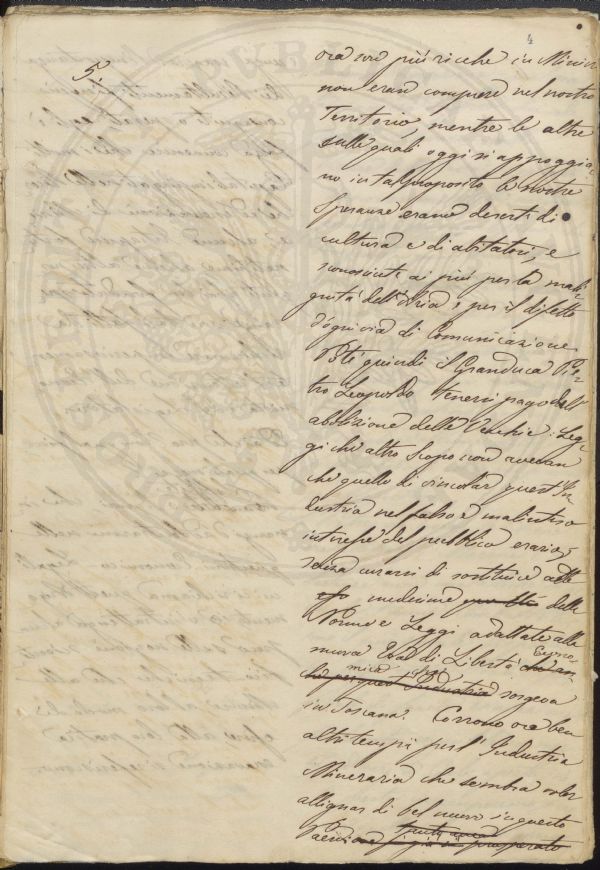 4
5.
ora son più ricche in Minier
non eran comprese nel nostro
Territorio, mentre le altre
sulle quali oggi si appoggia=
no in tal proposito le nostre
speranze erano deserte di
cultura e di abitatori, e
sconosciute ai più per la mali=
gnità dell'Aria e per il difetto
d'ogni via di Comunicazione
Potè quindi il Granduca Pie=
tro Leopoldo tenersi pago dell'
abolizione delle Vecchie Leg=
gi che altro scopo non avevan
che quello di vincolar quest'In
dustria nel falso e malinteso
interesse del pubblico erario,
senza curarsi di sostituire alle
medesime delle
Norme e Leggi adattate alla
nuova Era di Libertà Econo
mica che sorgeva
in Toscana. Corrono ora ben
altri tempi per l'Industria
Mineraria che sembra voler
allignar di bel nuovo in questo
Paese